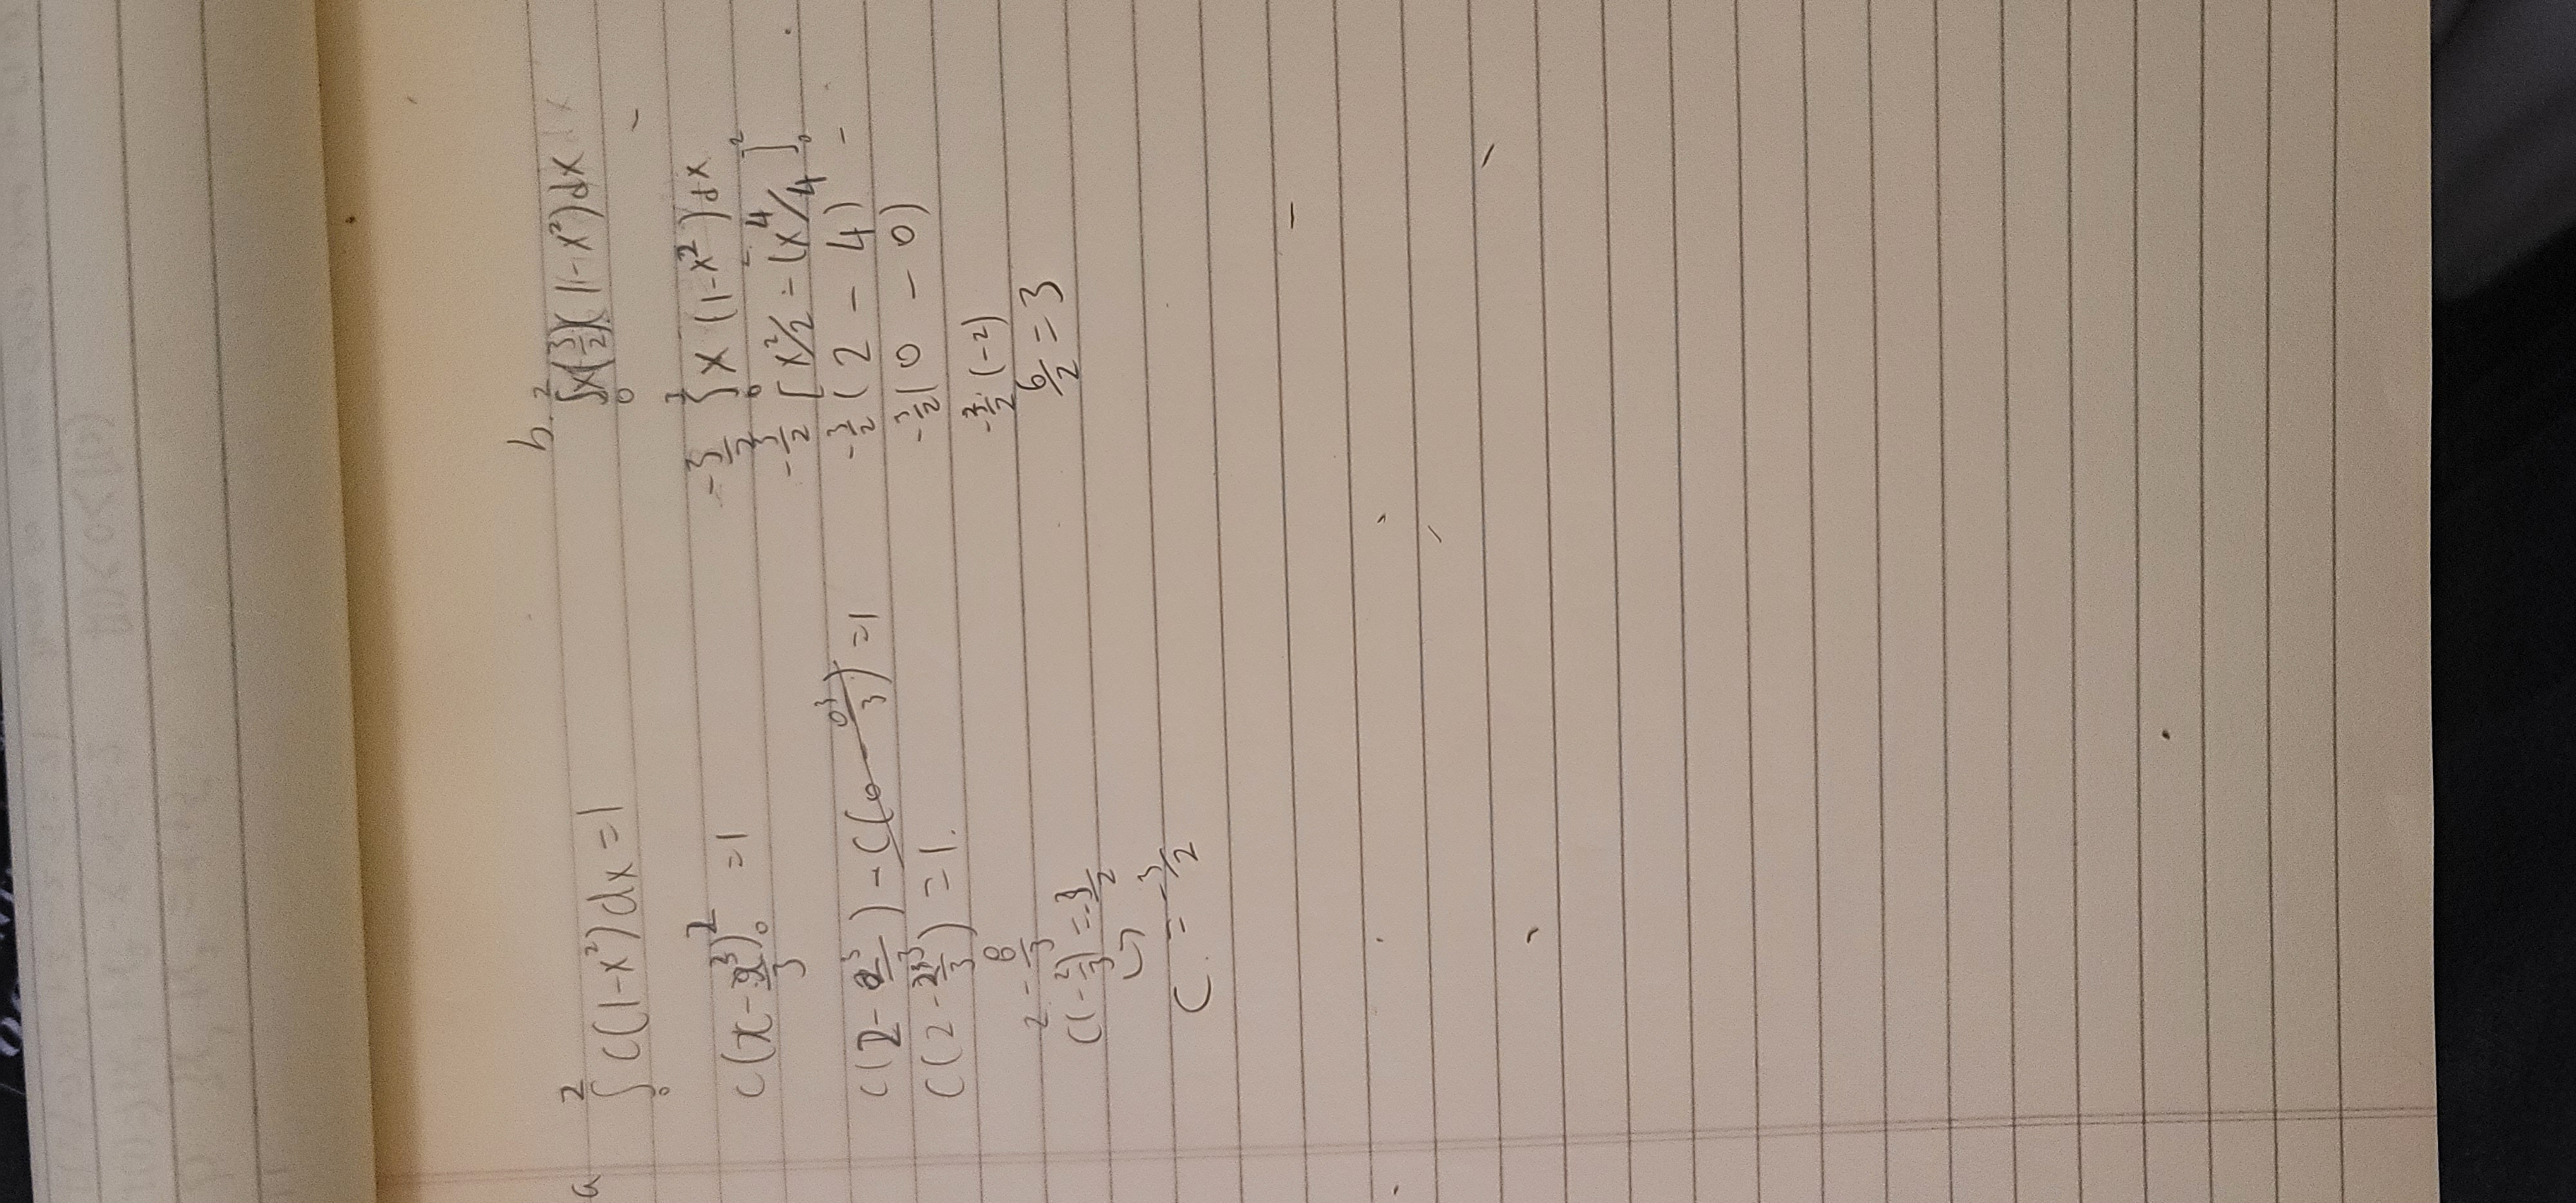 a ∫₀² C(1-x²)dx = 1
C(x - x³/3)₀² = 1
C(2 - 2³/3) - C(0 - 0³/3) = 1
C(2 - 2³/3) = 1.
2 - 8/3
C(-2/3) = -3/2
↳
C = -3/2
b. ∫₀² x(3/2)(1-x²)dx
-3/2 ∫₀² x(1-x²)dx
-3/2 [x²/2 - (x⁴/4]₀²
-3/2 (2 - 4)
-3/2 (0 - 0)
-3/2 (-2)
6/2 = 3